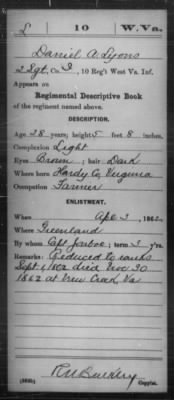 L 10 W.Va.
Daniel A. Lyons
2 Sgt, Co. I, 10 Reg't West Va. Inf.
Appears on
Regimental Descriptive Book
of the regiment named above.
DESCRIPTION.
Age 28 years; height 5 feet 8 inches.
Complexion Light
Eyes Brown; hair Dark
Where born Hardy Co, Virginia
Occupation Farmer
ENLISTMENT.
When Apl 3, 1862.
Where Greenland
By whom Capt Jarboe; term 3 y'rs.
Remarks: Reduced to ranks
Sept 1, 1862 died Nov 30
1862 at New Creek, Va
R M Barkley
Copyist.